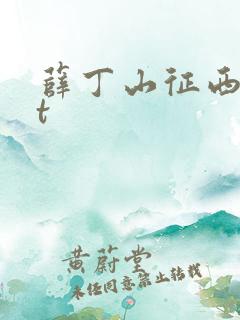 薛丁山征西
t
黄蔚堂
未经同意禁止转载